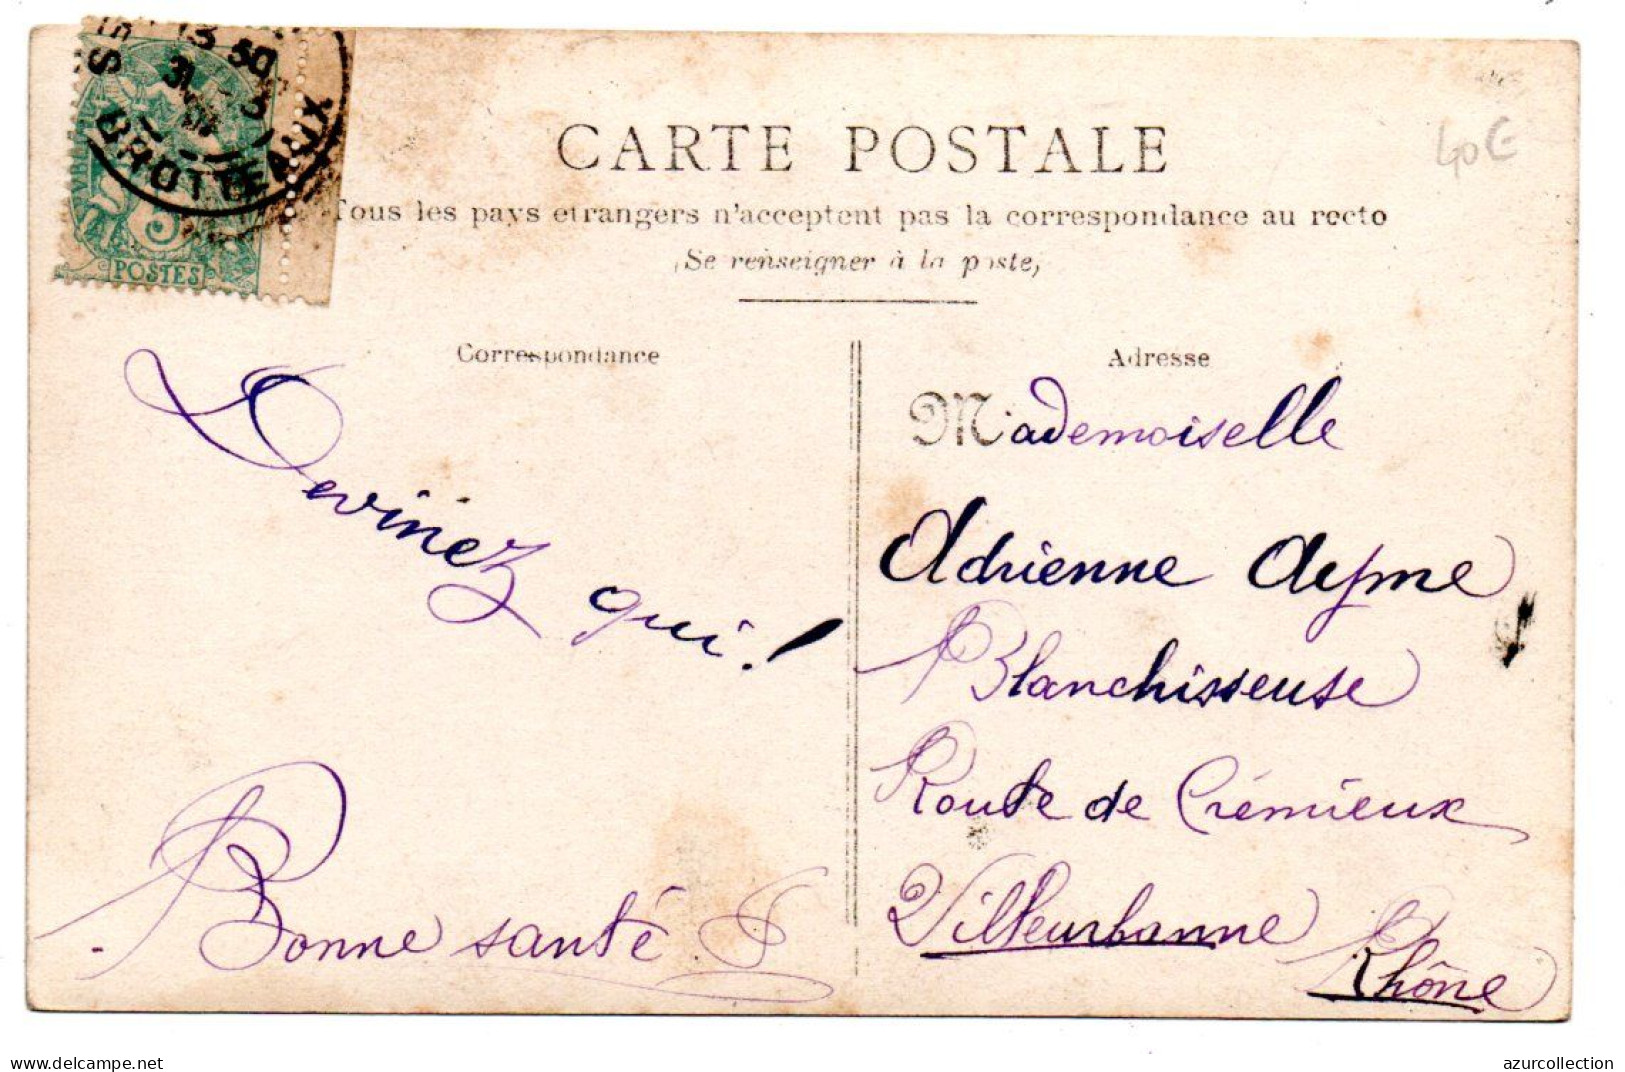 13 30
31 - 3
BROTTEAUX
5
POSTES
CARTE POSTALE
40€
Tous les pays etrangers n'acceptent pas la correspondance au recto
(Se renseigner à la poste)
Correspondance
Adresse
Devinez
qui!
Bonne santé
Mademoiselle
Adrienne Ayme
Blanchisseuse
Route de Crémieux
Villeurbanne
Rhône
delcampe.net
azurcollection